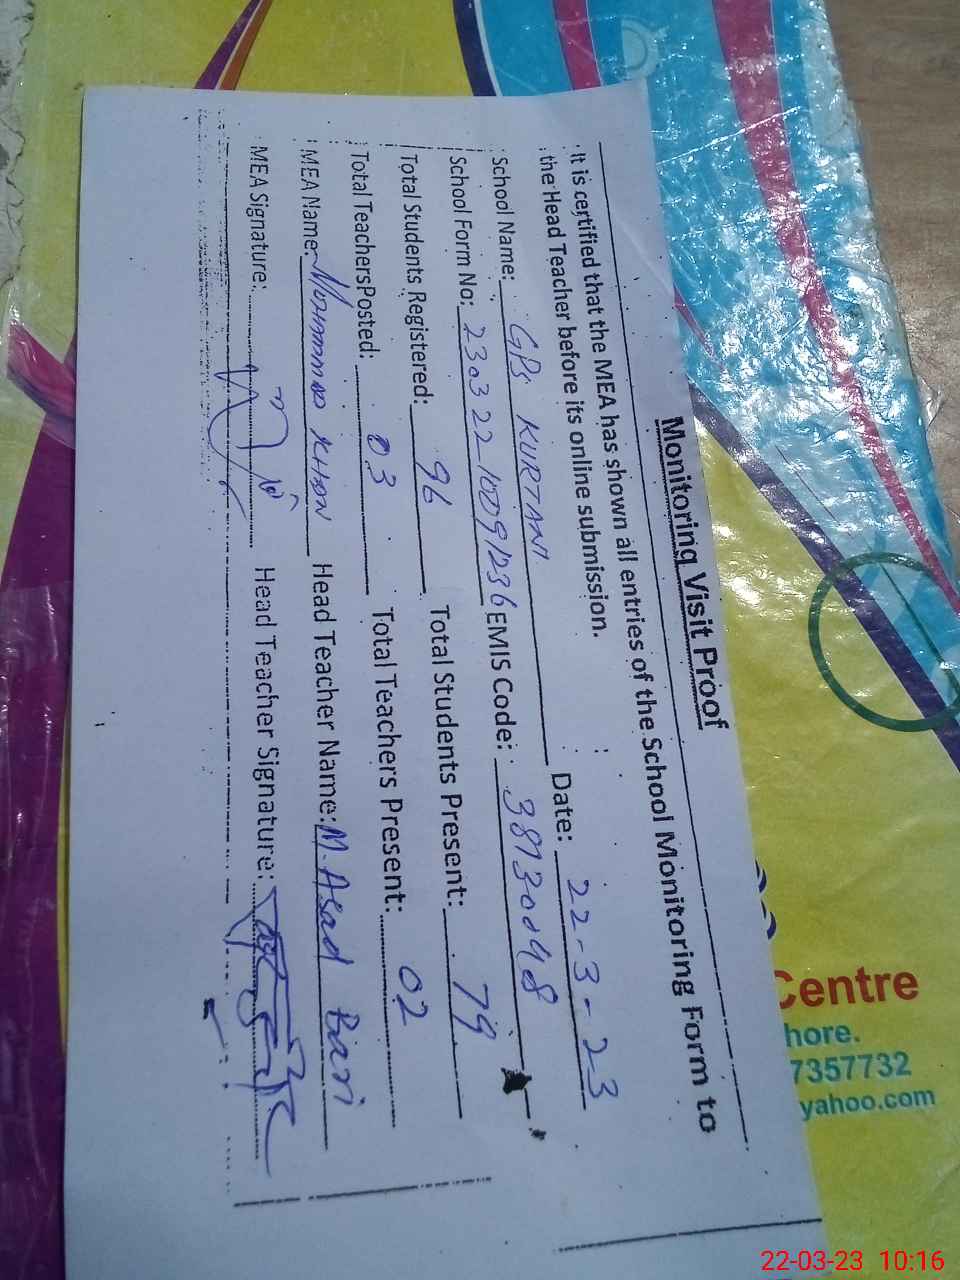 Monitoring Visit Proof
It is certified that the MEA has shown all entries of the School Monitoring Form to
the Head Teacher before its online submission.
School Name: GPS KURTANI Date: 22-3-23
School Form No: 230322-10091236 EMIS Code: 38130048
Total Students Registered: 96 Total Students Present: 79
Total Teachers Posted: 03 Total Teachers Present: 02
MEA Name: MOHMMAD KHAN Head Teacher Name: M. Asad Bari
MEA Signature: Head Teacher Signature:
Centre
hore.
7357732
yahoo.com
22-03-23 10:16